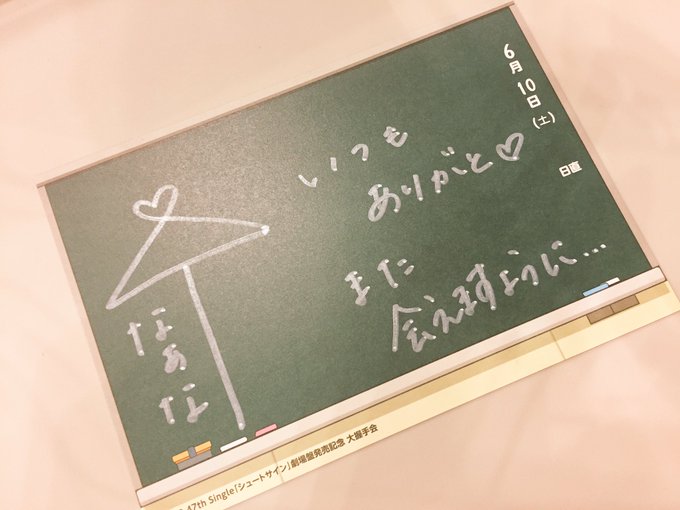 6月10日(土)
日直
いつも
ありがと♡
また
会えますように…
なぁな
47th Single「シュートサイン」劇場盤発売記念 大握手会